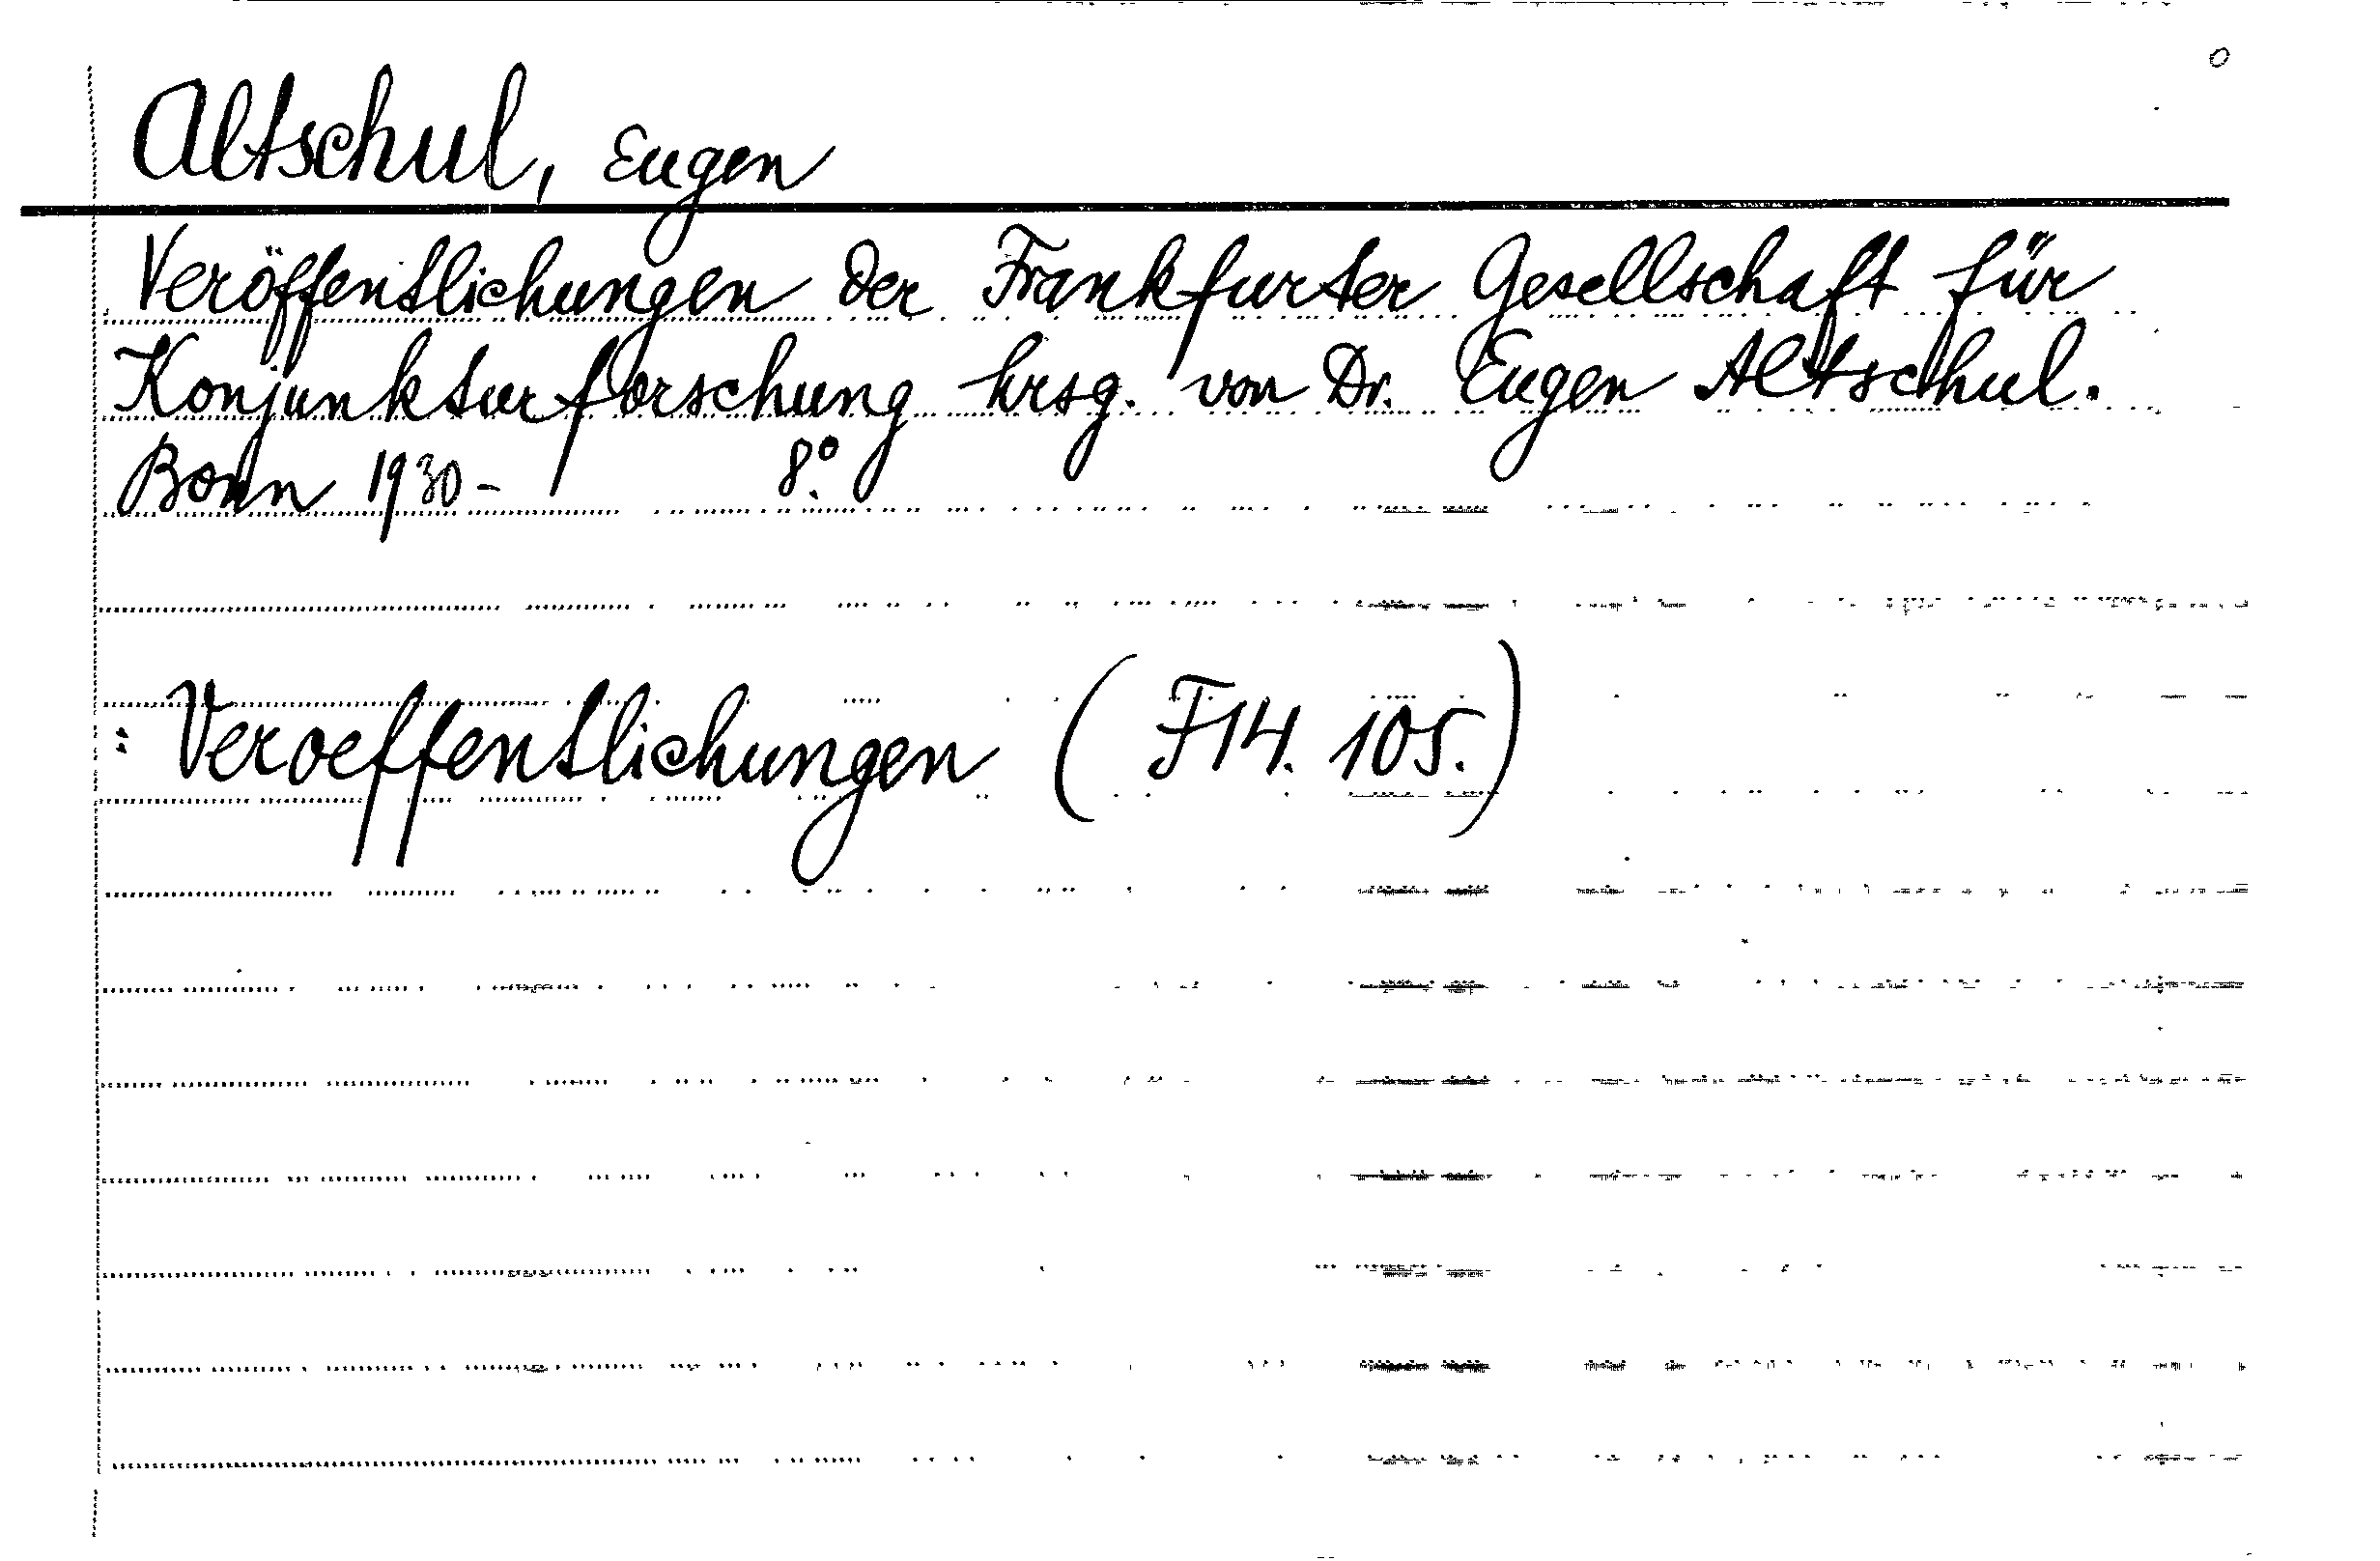 Altschul, Eugen
Veröffentlichungen der Frankfurter Gesellschaft für
Konjunkturforschung hrsg. von Dr. Eugen Altschul.
Bonn 1930- 8.°
: Veroeffentlichungen (F14. 105.)